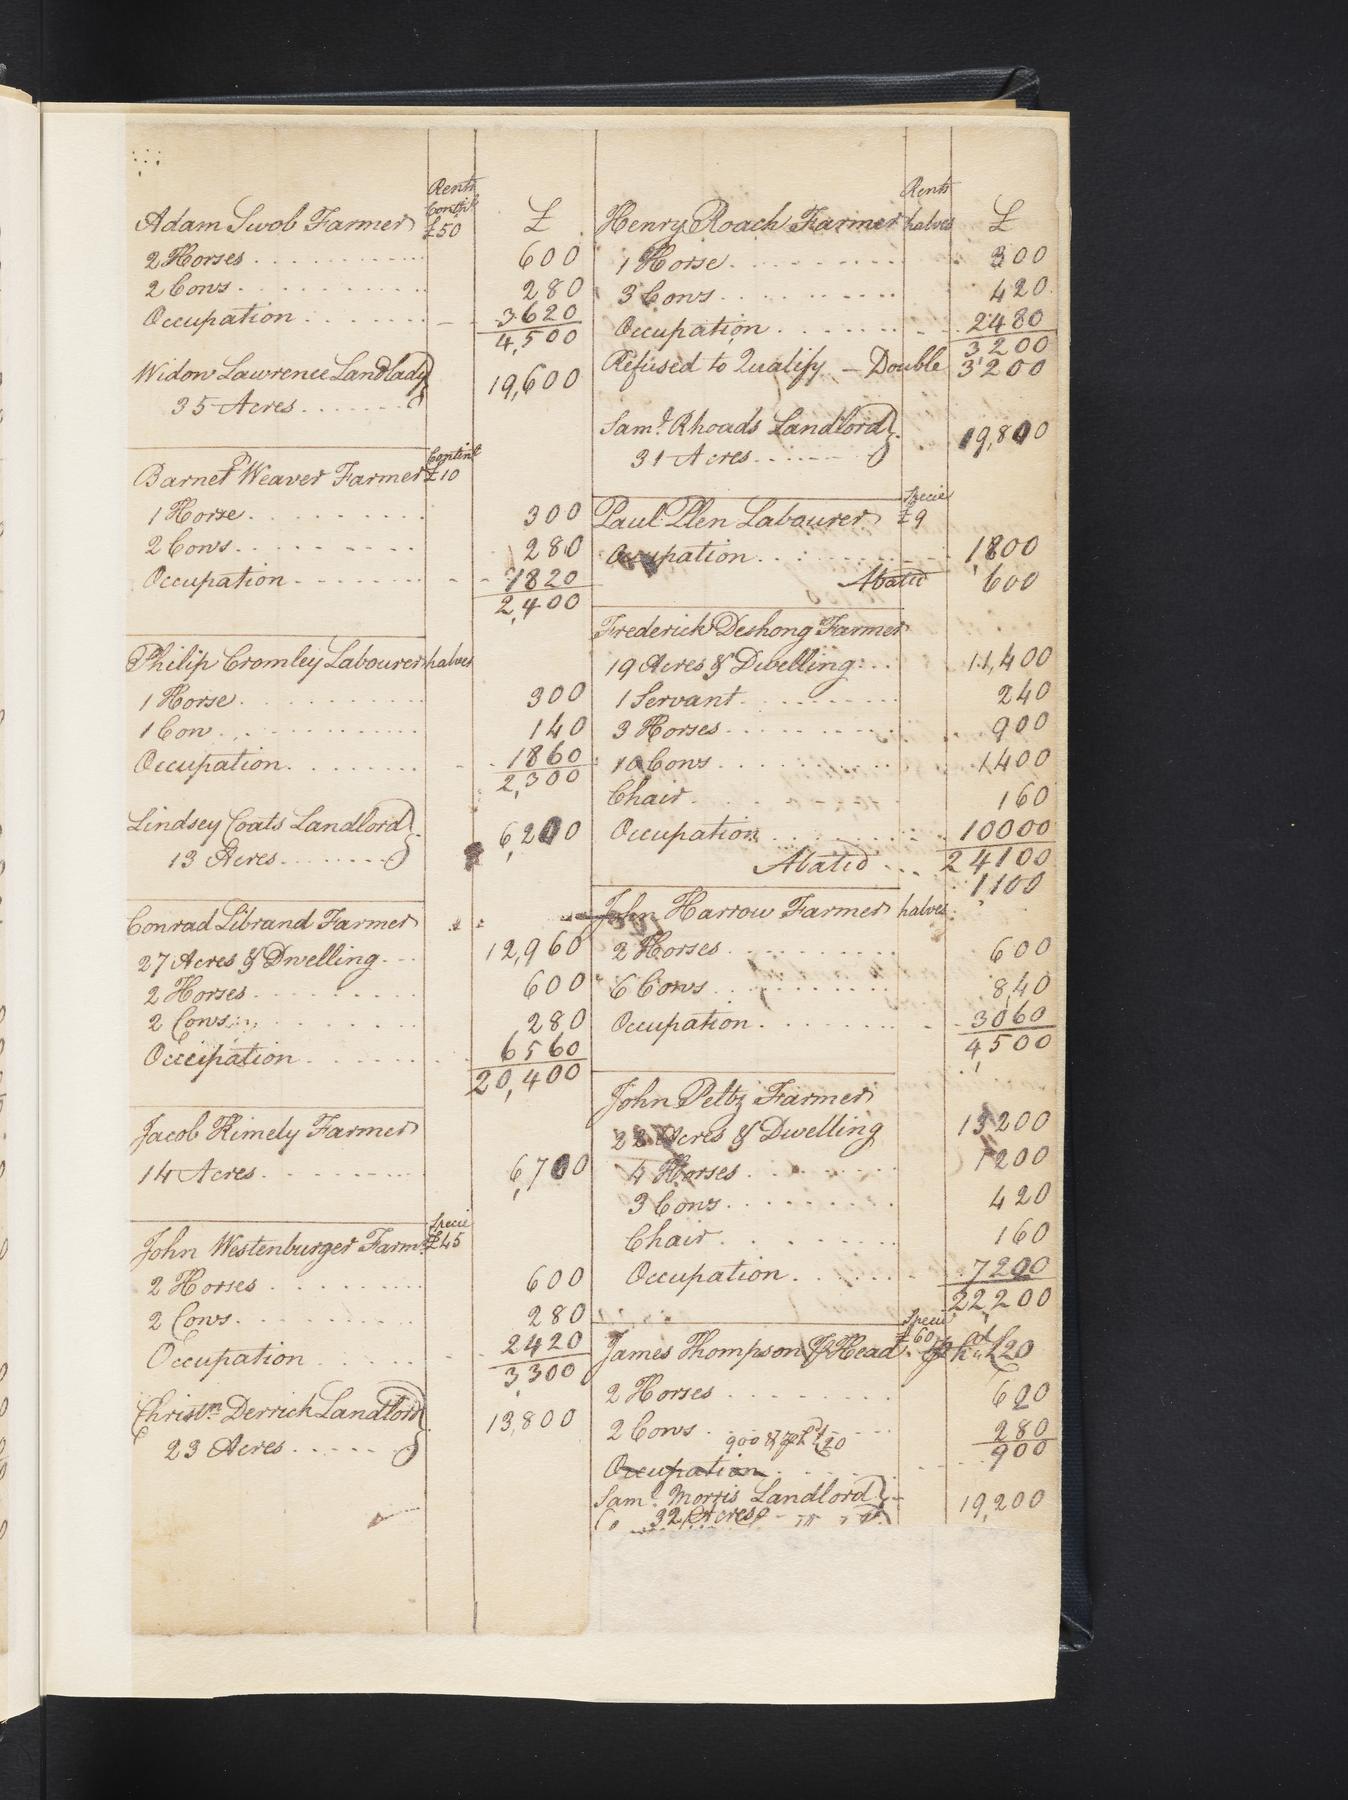 Rents
Contl
Adam Swob Farmer £50 £
2 Horses 600
2 Cows 280
Occupation 3620
4,500
Widow Lawrence Landlady
35 Acres 19,600
Contint
Barnet Weaver Farmer £10
1 Horse 300
2 Cows 280
Occupation 1820
2,400
Philip Cromley Labourer halves
1 Horse 300
1 Cow 140
Occupation 1860
2,300
Lindsey Coats Landlord
13 Acres 6,200
Conrad Librand Farmer
27 Acres & Dwelling 12,960
2 Horses 600
2 Cows 280
Occupation 6560
20,400
Jacob Kimely Farmer
14 Acres 6,700
Specie
John Westenburger Farmr £45
2 Horses 600
2 Cows 280
Occupation 2420
3,300
Christn Derrick Landlord
23 Acres 13,800
Rents
Henry Roach Farmer halves £
1 Horse 300
3 Cows 420
Occupation 2480
3,200
Refused to Qualify — Double 3200
Saml Rhoads Landlord
31 Acres 19,800
Specie
Paul Plen Labourer £9
Occupation 1,800
Abated 600
Frederick Deshong Farmer
19 Acres & Dwelling 11,400
1 Servant 240
3 Horses 900
10 Cows 1400
Chair 160
Occupation 10000
24100
Abated 1100
John Harrow Farmer halves
2 Horses 600
6 Cows 840
Occupation 3060
4500
John Peltz Farmer
22 Acres & Dwelling 13200
4 Horses 1200
3 Cows 420
Chair 160
Occupation 7200
22,200
Specie
£60
James Thompson Head £20
2 Horses 620
2 Cows 280
900 & £20 900
Occupation
Saml Morris Landlord
32 Acres 19,200